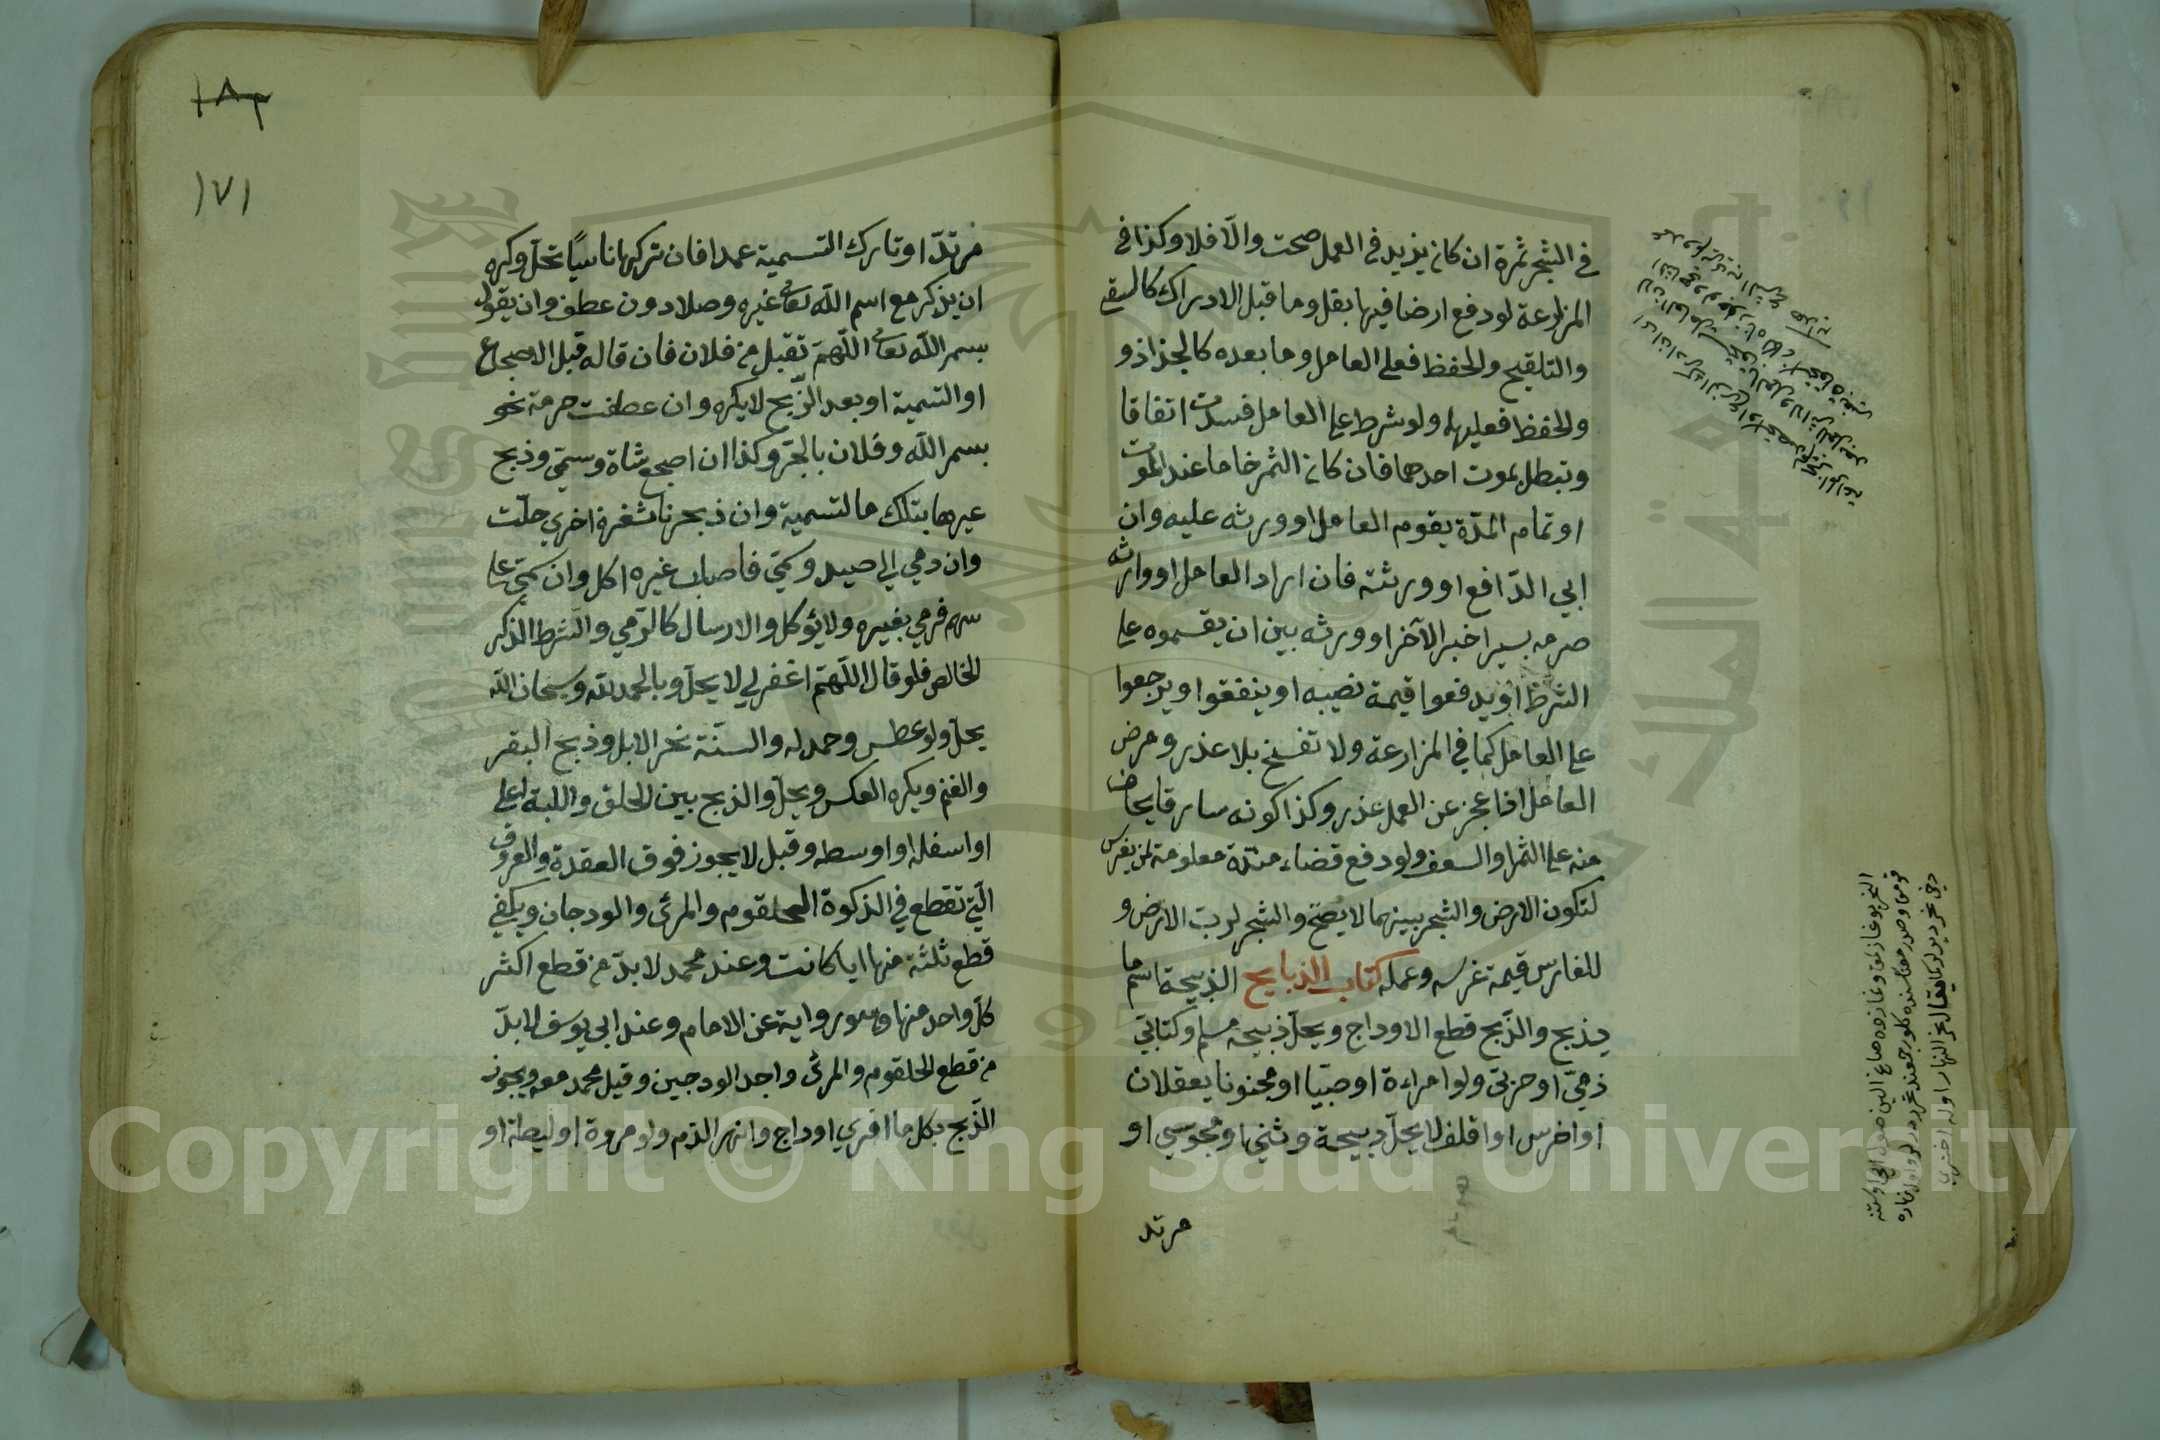 في الشجر ثمرة ان كان يزيد في العمل صحت والّا فلا وكذا في
المزارعة لو دفع ارضا فيها بقل وما قبل الادراك كالسقي
والتلقيح والحفظ فعلى العامل وما بعده كالجذاذ و
والحفظ فعليهما ولو شرط على العامل فسدت اتفاقا
وتبطل بموت احدهما فان كان الثمر خاما عند الموت
او تمام المدّة يقوم العامل او ورثه عليه وان
ابي الدّافع او ورثته فان اراد العامل او وارثه
صرمه بسيرا خير الآخر او ورثه بين ان يقسموه على
الشرط او يدفعوا قيمة نصيبه او ينفقوا ويرجعوا
على العامل كما في المزارعة ولا تفسخ بلا عذر ومرض
العامل اذا عجز عن العمل عذر وكذا كونه سارقا يخاف
منه على الثمر او السعف ولو دفع فضاء مدّة معلومة لمن يغرس
لتكون الارض والشجر بينهما لا يصحّ والشجر لربّ الارض و
للغارس قيمة غرسه وعمله كتاب الذبايح الذبيحة اسم ما
يذبح والذّبح قطع الاوداج ويحلّ ذبيحة مسلم وكتابيّ
ذميّ او حربيّ ولو امراءة او صبّيا او مجنونا يعقلان
او اخرس او اقلف لا يحلّ ذبيحة وثني او مجوسي او
مرتد
١٨٢
١٧١
مرتدّ او تارك التسمية عمدا فان تركها ناسيًا تحلّ وكره
ان يذكر مع اسم اللّه تعالى غيره وصلا دون عطف وان يقول
بسم اللّه تعالى اللّهمّ تقبل من فلان فان قاله قبل الاضجاع
او التسمية او بعد الذّبح لا يكره وان عطفت حرمة نحو
بسم اللّه وفلان بالجرّ وكذا ان اضجع شاة وسمّى وذبح
غيرها بتلك التسمية وان ذبحها بشفرة اخري حلّت
وان رمي الي صيد وسمّي فاصاب غيره اكل وان سمّي على
سهم فرمي بغيره ولا يؤكل والارسال كالرّمي والشرط الذكر
الخالص فلو قال اللّهمّ اغفر لي لا يحلّ وبالحمد لله وسبحان الله
يحلّ ولو عطس وحمد له والسنّة نحر الابل وذبح البقر
والغنم ويكره العكس ويحلّ والذبح بين الحلق واللبة اعلي
او اسفله او اوسطه وقيل لا يجوز فوق العقدة والعروق
الّتي تقطع في الذكوة الحلقوم والمرئ والودجان ويكفي
قطع ثلثة منها ايا كانت وعند محمد لا بدّ من قطع اكثر
كلّ واحد منها وهو رواية عن الامام وعند ابي يوسف لا بدّ
من قطع الحلقوم والمرئ واحد الودجين وقيل محمد معه ويجوز
الذّبح بكل ما افري اوداج وانهر الدّم ولو مروة او ليطة او
Copyright © King Saud University